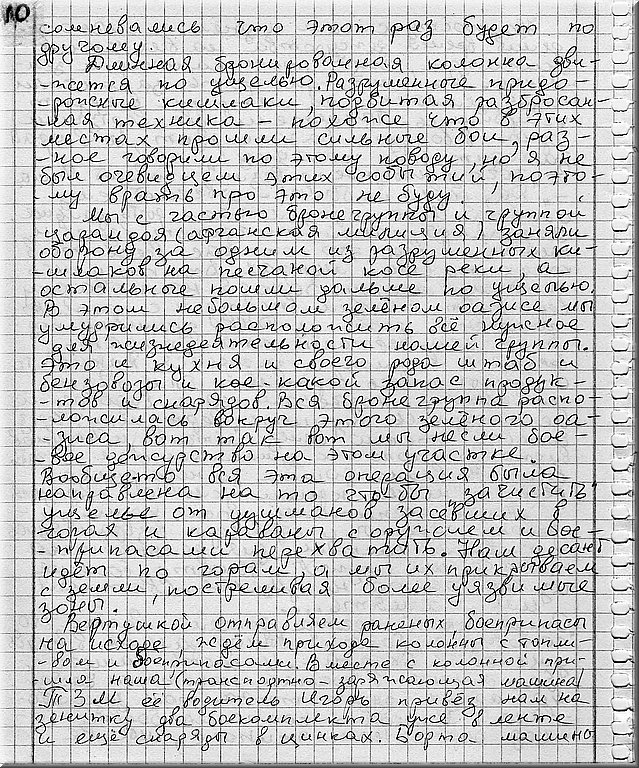 10
сомневались что этот раз будет по
другому.
Длинная бронированная колонна дви-
-жется по ущелью. Разрушенные придо-
-рожные кишлаки, подбитая разбросан-
-ная техника - похоже что в этих
местах прошли сильные бои, раз-
-ное говорили по этому поводу, но я не
был очевидцем этих событий, поэто-
-му врать про это не буду.
Мы с частью бронегруппы и группой
царандоя (афганская милиция) заняли
оборону за одним из разрушенных ки-
-шлаков на песчаной косе реки, а
остальные пошли дальше по ущелью.
В этом небольшом зелёном оазисе мы
умудрились расположить всё нужное
для жизнедеятельности нашей группы.
Это и кухня и своего рода штаб и
бензовозы и кое-какой запас продук-
-тов и снарядов. Вся бронегруппа распо-
-ложилась вокруг этого зелёного оа-
-зиса, вот так вот мы несли бое-
-вое дежурство на этом участке.
Вообщето вся эта операция была
направлена на то что бы "зачистить"
ущелье от душманов засевших в
горах и караваны с оружием и бое-
-припасами перехватать. Наш десант
идёт по горам, а мы их прикрываем
с земли, постреливая более уязвимые
зоны.
Вертушкой отправляем раненых, боеприпасы
на исходе, ждём прихода колонны с топли-
-вом и боеприпасами. Вместе с колонной при-
-шла наша (транспортно-заряжающая машина)
ТЗМ, её водитель Игорь привёз нам на
зенитку два боекомплекта уже в ленте
и ещё снаряды в цинках. Борта машины